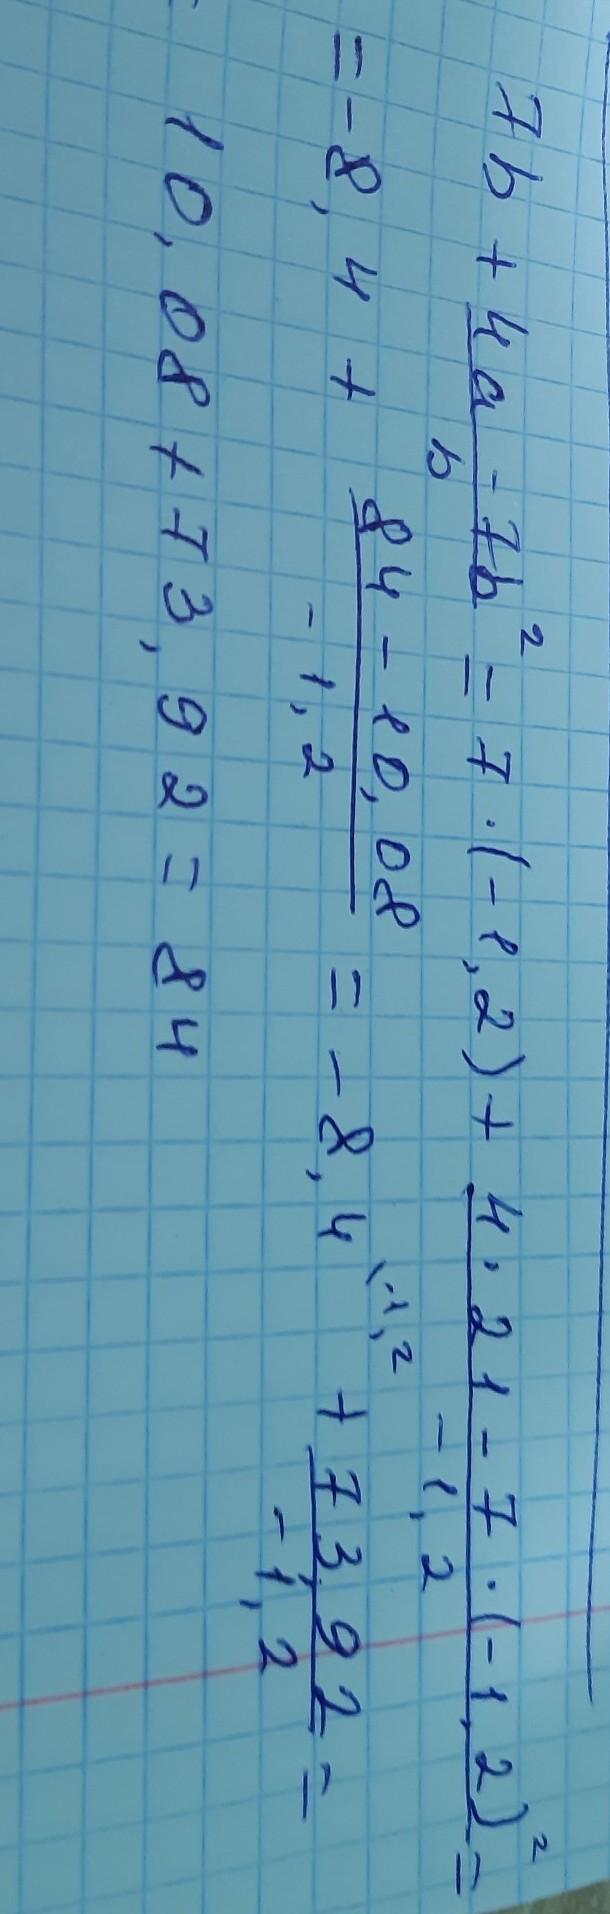 7b + \frac{4a - 7b^2}{b} = 7 \cdot (-1,2) + \frac{4 \cdot 21 - 7 \cdot (-1,2)^2}{-1,2} =
= -8,4 + \frac{84 - 10,08}{-1,2} = -8,4^{\backslash -1,2} + \frac{73,92}{-1,2} =
10,08 + 73,92 = 84